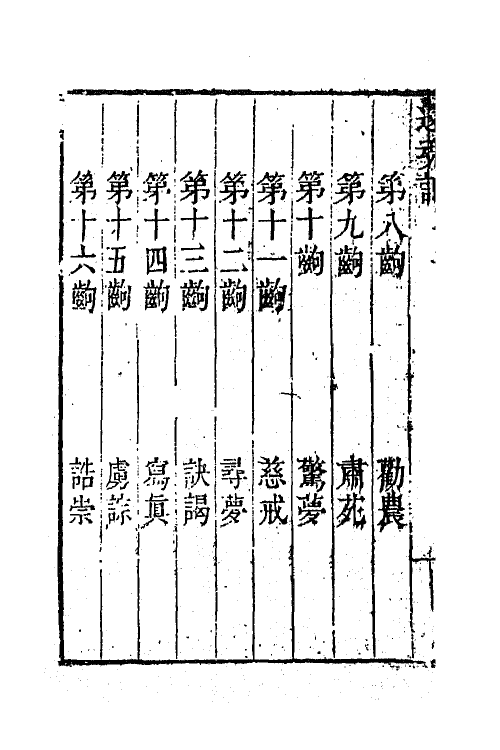 第八齣 勸農
第九齣 肅苑
第十齣 驚夢
第十一齣 慈戒
第十二齣 尋夢
第十三齣 訣謁
第十四齣 寫眞
第十五齣 虜諜
第十六齣 詰祟